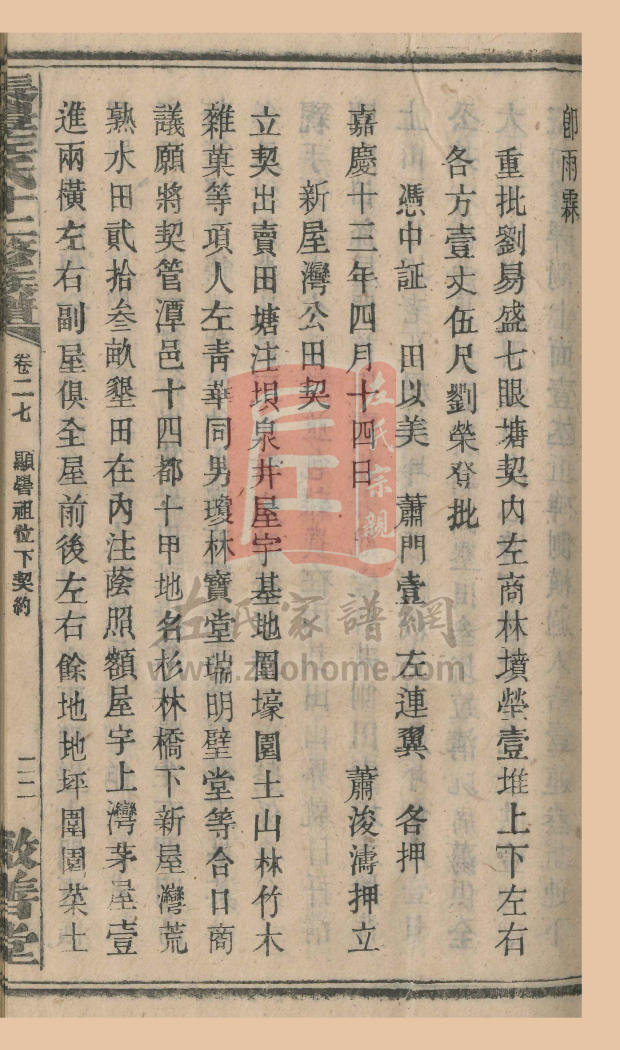 卽雨霖
重批劉易盛七眼塘契内左商林墳塋壹堆上下左右
各方壹丈伍尺劉榮登批
憑中証　田以美　蕭門壹　左連翼　各押
嘉慶十三年四月十四日　蕭浚濤押立
新屋灣公田契
立契出賣田塘注垻泉井屋宇基地圍壕園土山林竹木
雜菓等項人左靑華同男瓊林寶堂瑞明璧堂等合口商
議願將契管潭邑十四都十甲地名杉林橋下新屋灣荒
熟水田貳拾叁畝墾田在內注蔭照額屋宇上灣茅屋壹
進兩橫左右副屋俱全屋前後左右餘地地坪圍園菜土
左氏十二修族譜
卷二七　顯譽祖位下契約
二二
敦善堂
左氏宗親
左氏家譜網
www.zuohome.com